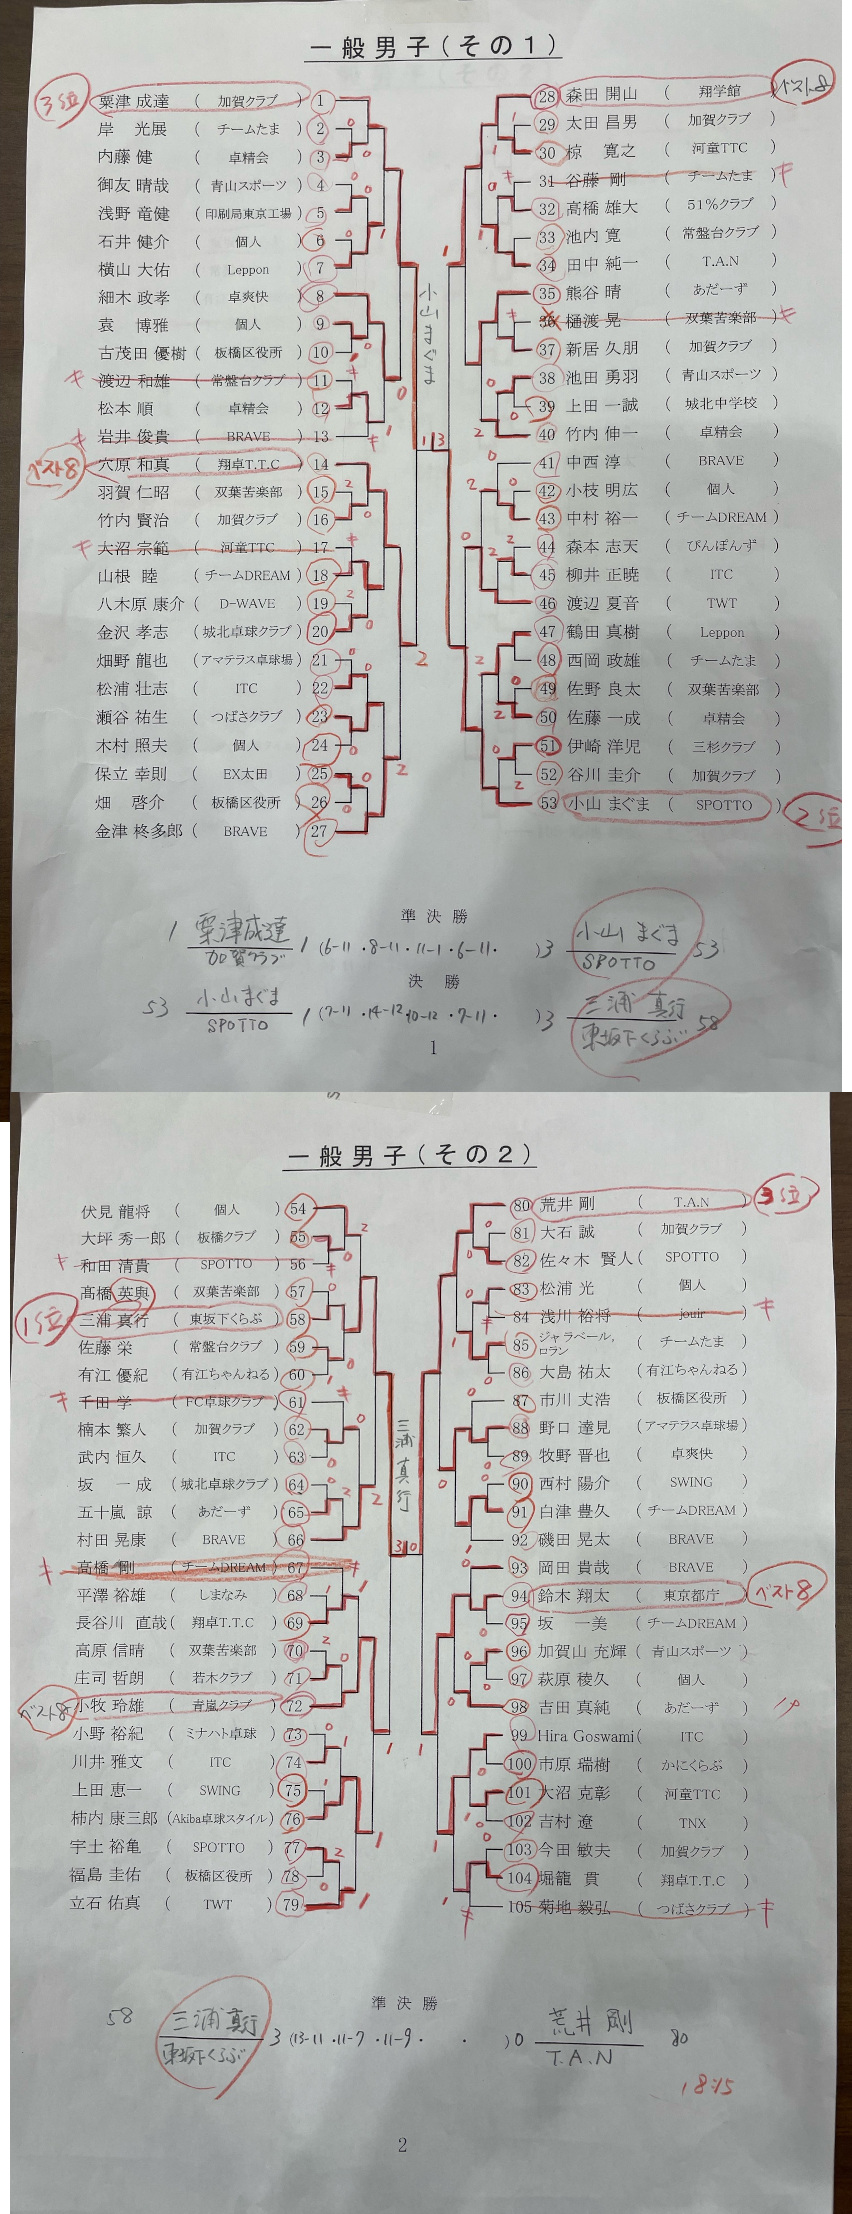 一般男子(その1)
3位 粟津 成達 ( 加賀クラブ ) 1
岸 光展 ( チームたま ) 2
内藤 健 ( 卓精会 ) 3
御友 晴哉 ( 青山スポーツ ) 4
浅野 竜健 ( 印刷局東京工場 ) 5
石井 健介 ( 個人 ) 6
横山 大佑 ( Leppon ) 7
細木 政孝 ( 卓爽快 ) 8
袁 博雅 ( 個人 ) 9
古茂田 優樹 ( 板橋区役所 ) 10
キ 渡辺 和雄 ( 常盤台クラブ ) 11
松本 順 ( 卓精会 ) 12
キ 岩井 俊貴 ( BRAVE ) 13
ベスト8 穴原 和真 ( 翔卓T.T.C ) 14
羽賀 仁昭 ( 双葉苦楽部 ) 15
竹内 賢治 ( 加賀クラブ ) 16
キ 大沼 宗範 ( 河童TTC ) 17
山根 睦 ( チームDREAM ) 18
八木原 康介 ( D-WAVE ) 19
金沢 孝志 ( 城北卓球クラブ ) 20
畑野 龍也 ( アマテラス卓球場 ) 21
松浦 壮志 ( ITC ) 22
瀬谷 祐生 ( つばさクラブ ) 23
木村 照夫 ( 個人 ) 24
保立 幸則 ( EX太田 ) 25
畑 啓介 ( 板橋区役所 ) 26
金津 柊多郎 ( BRAVE ) 27
小山まぐま
1 3
28 森田 開山 ( 翔学館 ) ベスト8
29 太田 昌男 ( 加賀クラブ )
30 椋 寛之 ( 河童TTC )
31 谷藤 剛 ( チームたま ) キ
32 高橋 雄大 ( 51%クラブ )
33 池内 寛 ( 常盤台クラブ )
34 田中 純一 ( T.A.N )
35 熊谷 晴 ( あだーず )
36 樋渡 晃 ( 双葉苦楽部 ) キ
37 新居 久朋 ( 加賀クラブ )
38 池田 勇羽 ( 青山スポーツ )
39 上田 一誠 ( 城北中学校 )
40 竹内 伸一 ( 卓精会 )
41 中西 淳 ( BRAVE )
42 小枝 明広 ( 個人 )
43 中村 裕一 ( チームDREAM )
44 森本 志天 ( ぴんぽんず )
45 柳井 正暁 ( ITC )
46 渡辺 夏音 ( TWT )
47 鶴田 真樹 ( Leppon )
48 西岡 政雄 ( チームたま )
49 佐野 良太 ( 双葉苦楽部 )
50 佐藤 一成 ( 卓精会 )
51 伊崎 洋児 ( 三杉クラブ )
52 谷川 圭介 ( 加賀クラブ )
53 小山 まぐま ( SPOTTO ) 2位
準決勝
1 粟津成達 加賀クラブ 1 (6-11 ・8-11 ・11-1 ・6-11 ・ ) 3 小山 まぐま SPOTTO 53
決勝
53 小山まぐま SPOTTO 1 (7-11 ・14-12 ・10-12 ・7-11 ・ ) 3 三浦 真行 東坂下くらぶ 58
1
一般男子(その2)
伏見 龍将 ( 個人 ) 54
大坪 秀一郎 ( 板橋クラブ ) 55
キ 和田 清貴 ( SPOTTO ) 56
髙橋 英輿 ( 双葉苦楽部 ) 57
1位 三浦 真行 ( 東坂下くらぶ ) 58
佐藤 栄 ( 常盤台クラブ ) 59
有江 優紀 ( 有江ちゃんねる ) 60
キ 千田 学 ( FC卓球クラブ ) 61
楠本 繁人 ( 加賀クラブ ) 62
武内 恒久 ( ITC ) 63
坂 一成 ( 城北卓球クラブ ) 64
五十嵐 諒 ( あだーず ) 65
村田 晃康 ( BRAVE ) 66
キ 高橋 剛 ( チームDREAM ) 67
平澤 裕雄 ( しまなみ ) 68
長谷川 直哉 ( 翔卓T.T.C ) 69
高原 信晴 ( 双葉苦楽部 ) 70
庄司 哲朗 ( 若木クラブ ) 71
ベスト8 小牧 玲雄 ( 青嵐クラブ ) 72
小野 裕紀 ( ミナハト卓球 ) 73
川井 雅文 ( ITC ) 74
上田 恵一 ( SWING ) 75
柿内 康三郎 ( Akiba卓球スタイル ) 76
宇土 裕亀 ( SPOTTO ) 77
福島 圭佑 ( 板橋区役所 ) 78
立石 佑真 ( TWT ) 79
三浦真行
3 0
80 荒井 剛 ( T.A.N ) 3位
81 大石 誠 ( 加賀クラブ )
82 佐々木 賢人 ( SPOTTO )
83 松浦 光 ( 個人 )
84 浅川 裕将 ( jouir ) キ
85 ジャラベール,ロラン ( チームたま )
86 大島 祐太 ( 有江ちゃんねる )
87 市川 丈浩 ( 板橋区役所 )
88 野口 達見 ( アマテラス卓球場 )
89 牧野 晋也 ( 卓爽快 )
90 西村 陽介 ( SWING )
91 白津 豊久 ( チームDREAM )
92 磯田 晃太 ( BRAVE )
93 岡田 貴哉 ( BRAVE )
94 鈴木 翔太 ( 東京都庁 ) ベスト8
95 坂 一美 ( チームDREAM )
96 加賀山 充輝 ( 青山スポーツ )
97 萩原 稜久 ( 個人 )
98 吉田 真純 ( あだーず )
99 Hira Goswami ( ITC )
100 市原 瑞樹 ( かにくらぶ )
101 大沼 克彰 ( 河童TTC )
102 吉村 遼 ( TNX )
103 今田 敏夫 ( 加賀クラブ )
104 堀籠 貫 ( 翔卓T.T.C )
105 菊地 毅弘 ( つばさクラブ ) キ
準決勝
58 三浦 真行 東坂下くらぶ 3 (13-11 ・11-7 ・11-9 ・ ・ ) 0 荒井 剛 T.A.N 80
18:15
2